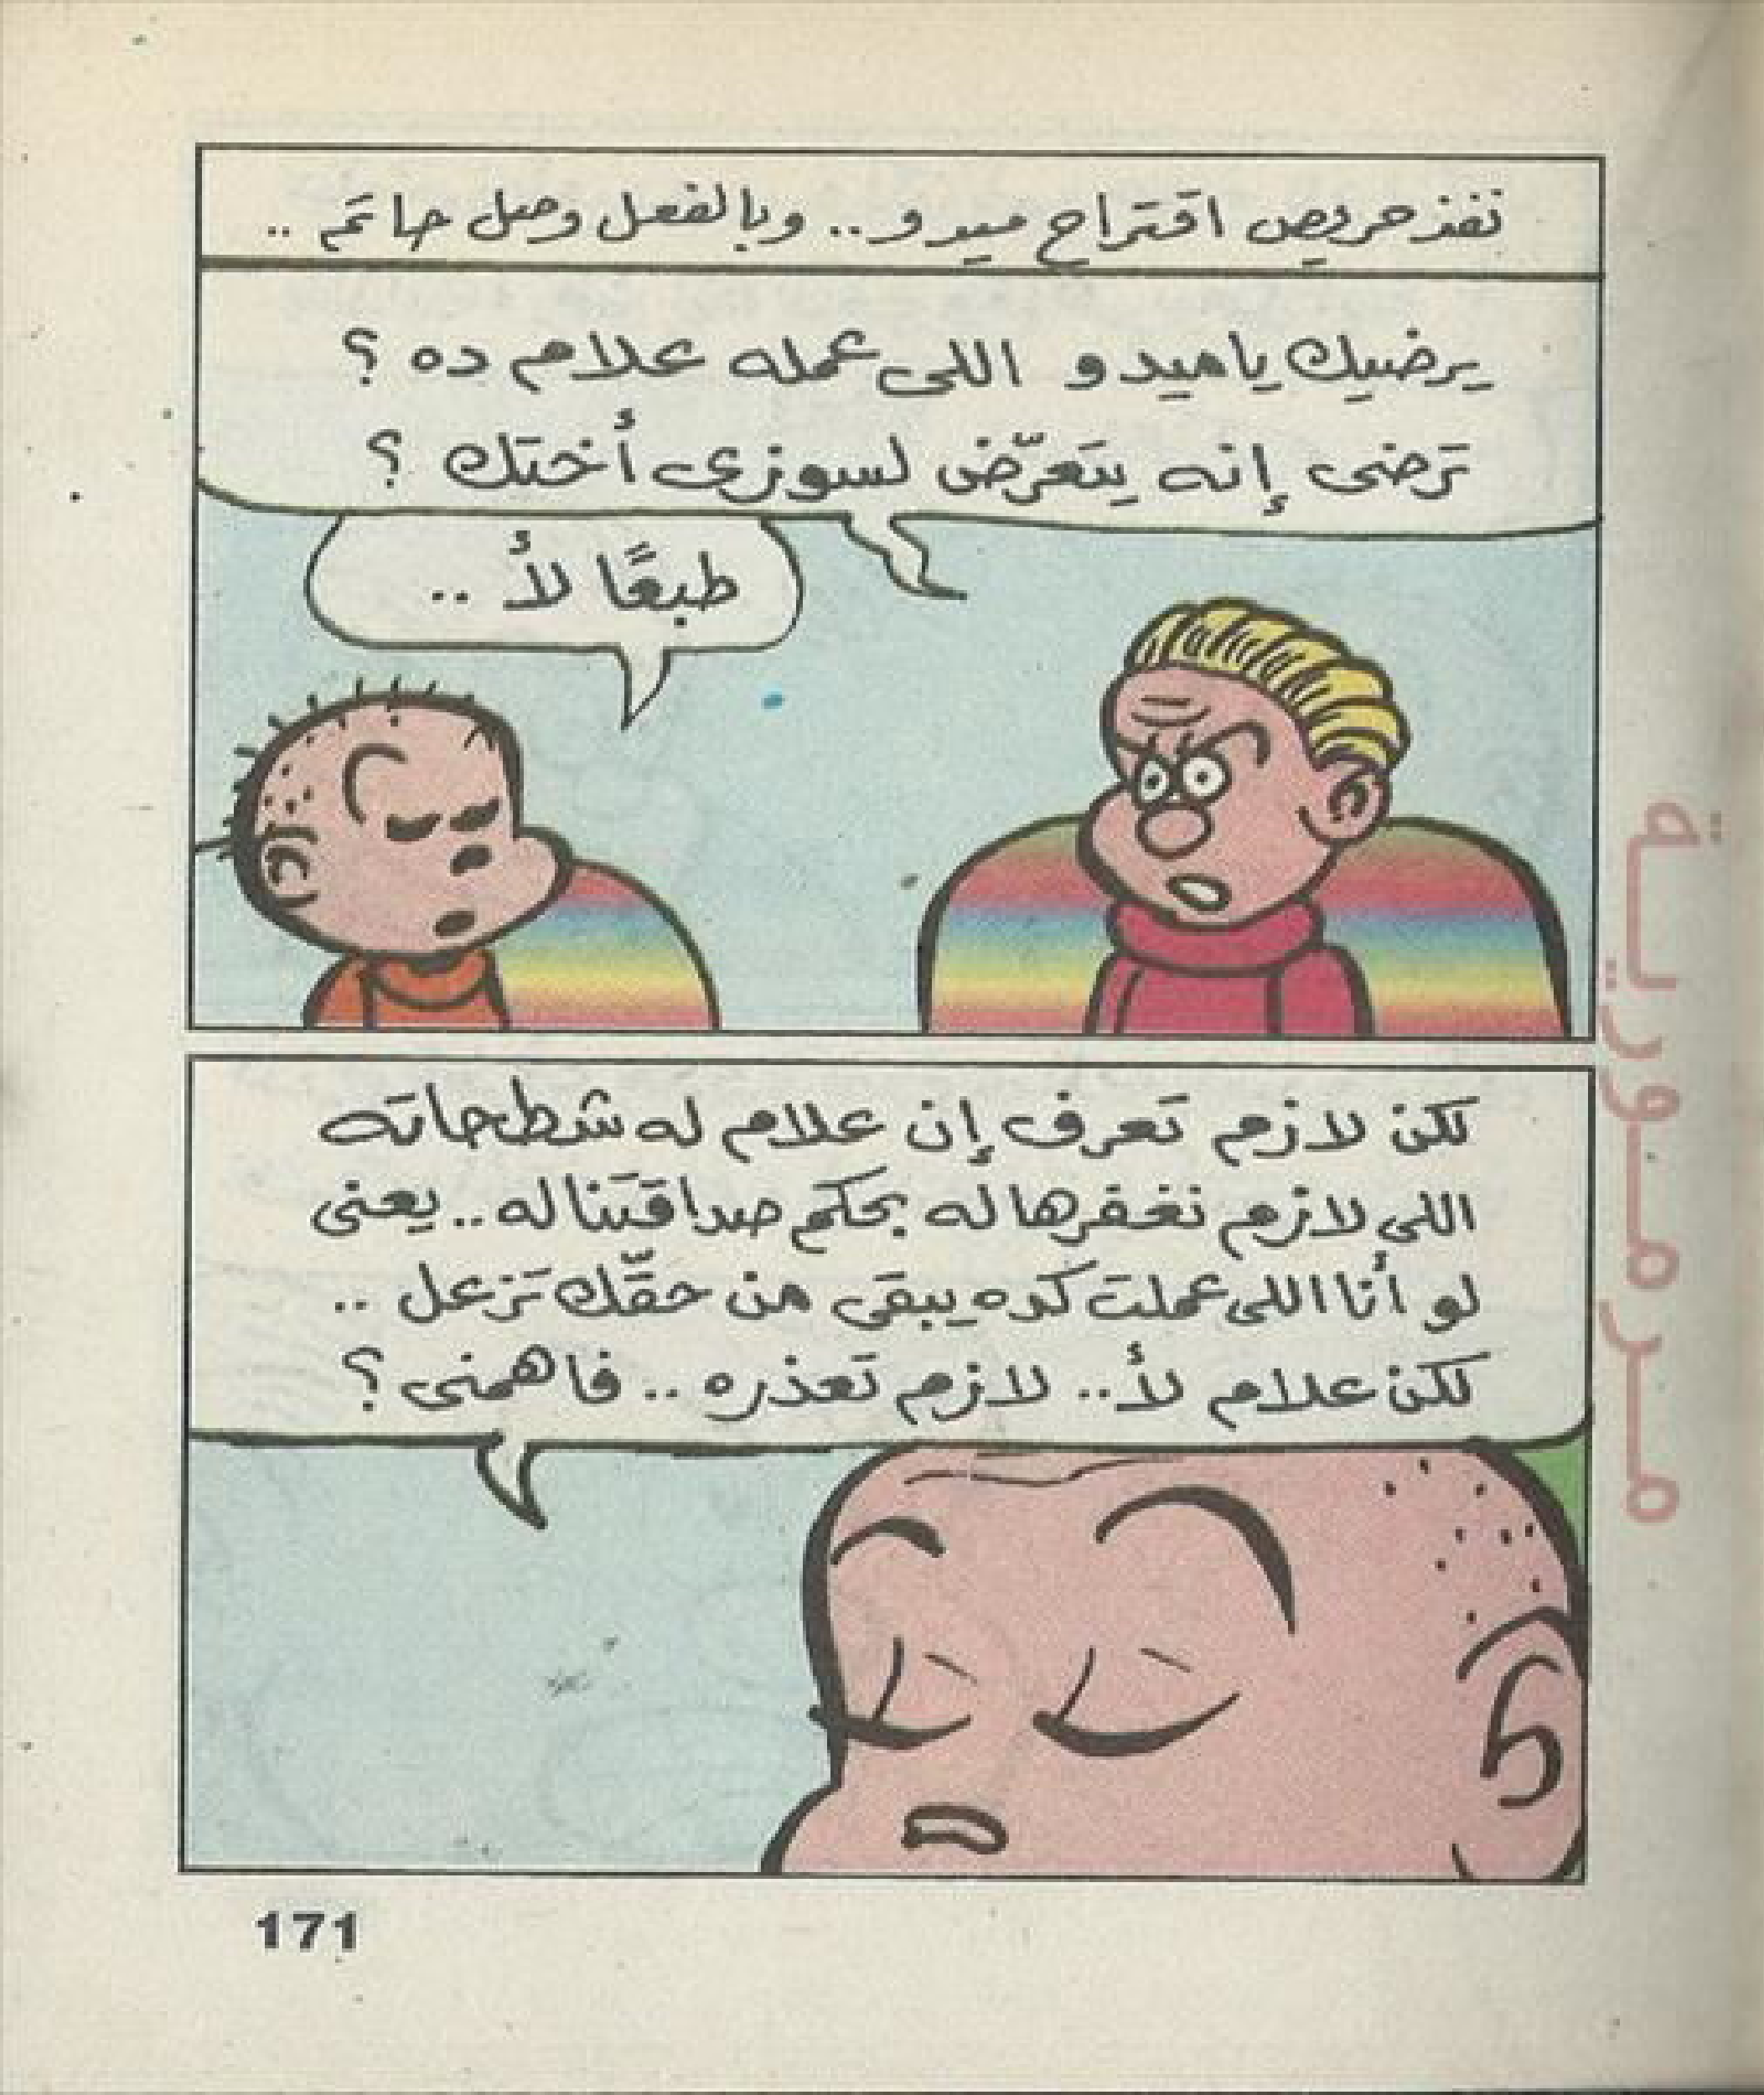 نفذ حريص اقتراح ميدو.. وبالفعل وصل حاتم ..
يرضيك ياميدو اللى عمله علام ده ؟
ترضى إنه يتعرّض لسوزى أختك ؟
طبعًا لأ ..
لكن لازم تعرف إن علام له شطحاته
اللى لازم نغفرها له بحكم صداقتنا له .. يعنى
لو أنا اللى عملت كده يبقى من حقّك تزعل ..
لكن علام لأ .. لازم تعذره .. فاهمنى ؟
مرمورية
171